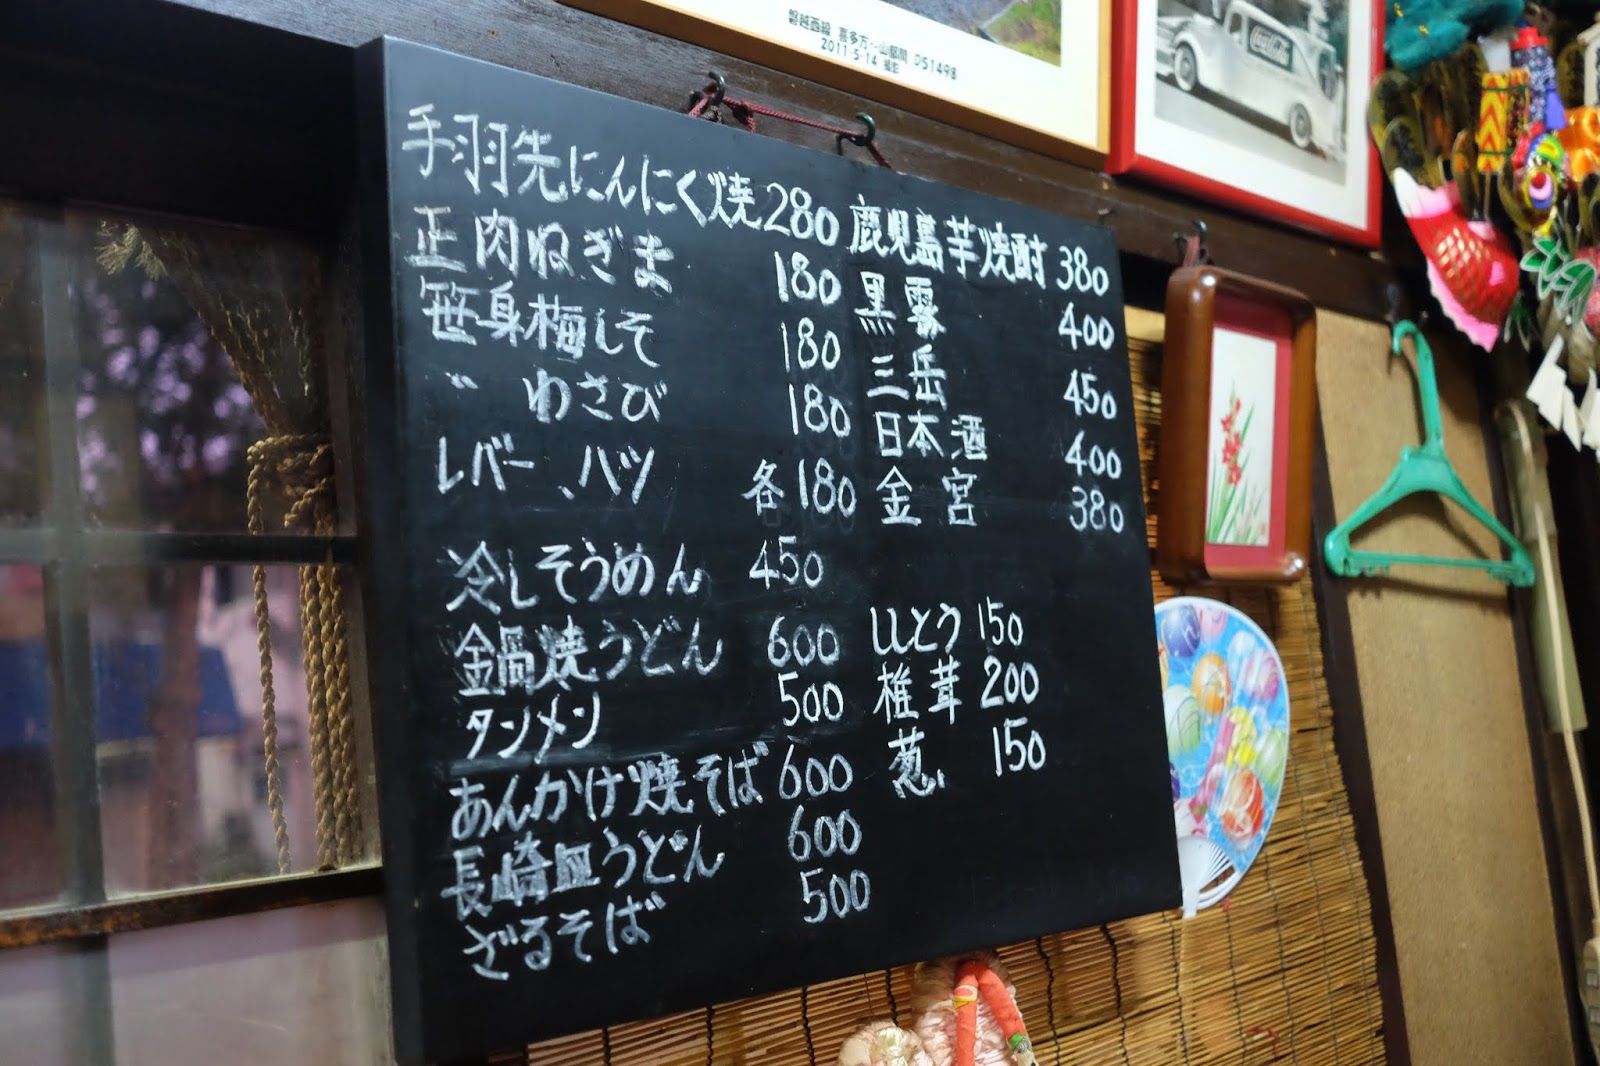 磐越西線 喜多方〜山都間 D51498
2011・5・14 撮影
Coca-Cola
手羽先にんにく焼 280
正肉ねぎま 180
笹身梅しそ 180
〃 わさび 180
レバー、ハツ 各180
冷しそうめん 450
鍋焼うどん 600
タンメン 500
あんかけ焼そば 600
長崎皿うどん 600
ざるそば 500
鹿児島芋焼酎 380
黒霧 400
三岳 450
日本酒 400
金宮 380
ししとう 150
椎茸 200
葱 150